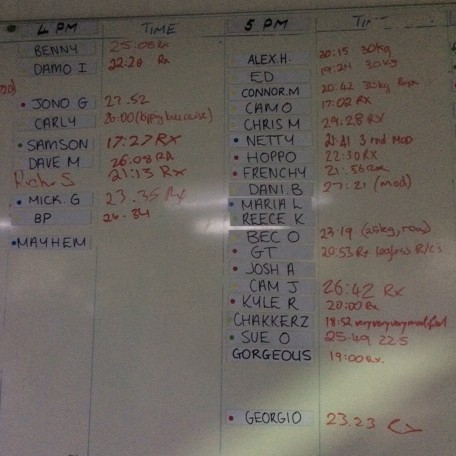 4 PM TIME
BENNY 25:06 Rx
DAMO I 22:20 Rx
JONO G 27.52
CARLY 20:00
SAMSON 17:27 RX
DAVE M 26.08 RX
Rich. S 21:13 RX
MICK. G 23.35 Rx
BP 26.34
MAYHEM
5 PM
ALEX.H. 20:15 30kg
ED 19:24 30kg
CONNOR.M 20.42
CAMO 17:02 RX
CHRIS M 29:28 RX
NETTY 21:41 3 rnd Mod
HOPPO 22:30 RX
FRENCHY 21:56
DANI.B 27:21 (mod)
MARIA L
REECE K
BEC O 23:19 (25kg, row)
GT 20:53 Rx
JOSH A
CAM J 26:42 Rx
KYLE R 20:00 Rx
CHAKKERZ 18:52 veryveryverymodified
SUE O 25:49 22.5
GORGEOUS 19:00 Rx.
GEORGIO 23.23 Rx